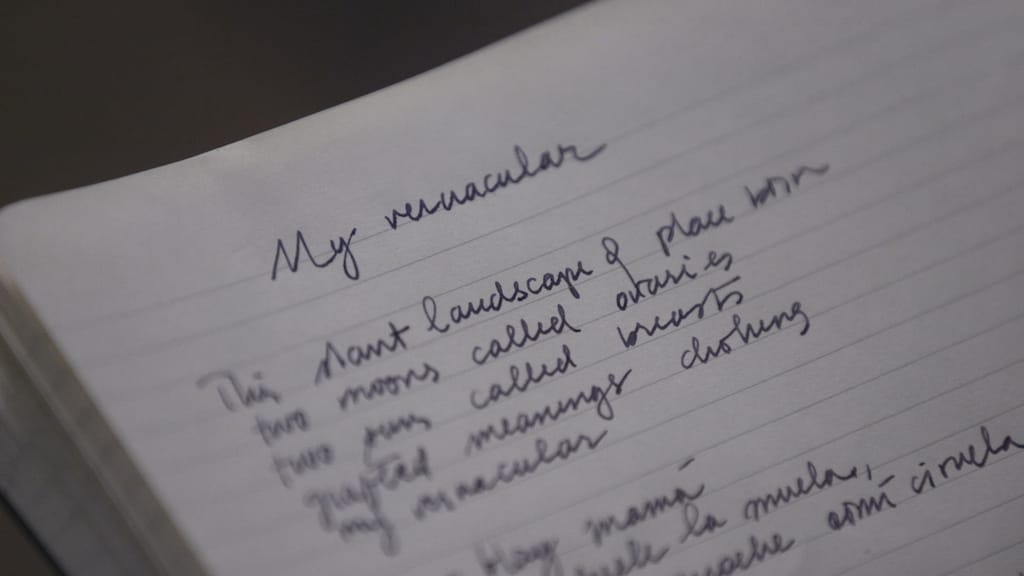 My vernacular
This slant landscape of place worn
two moons called ovaries
two suns called breasts
grafted meanings clothing
my vernacular
Hay mamá
duele la muela,
noche comí ciruela